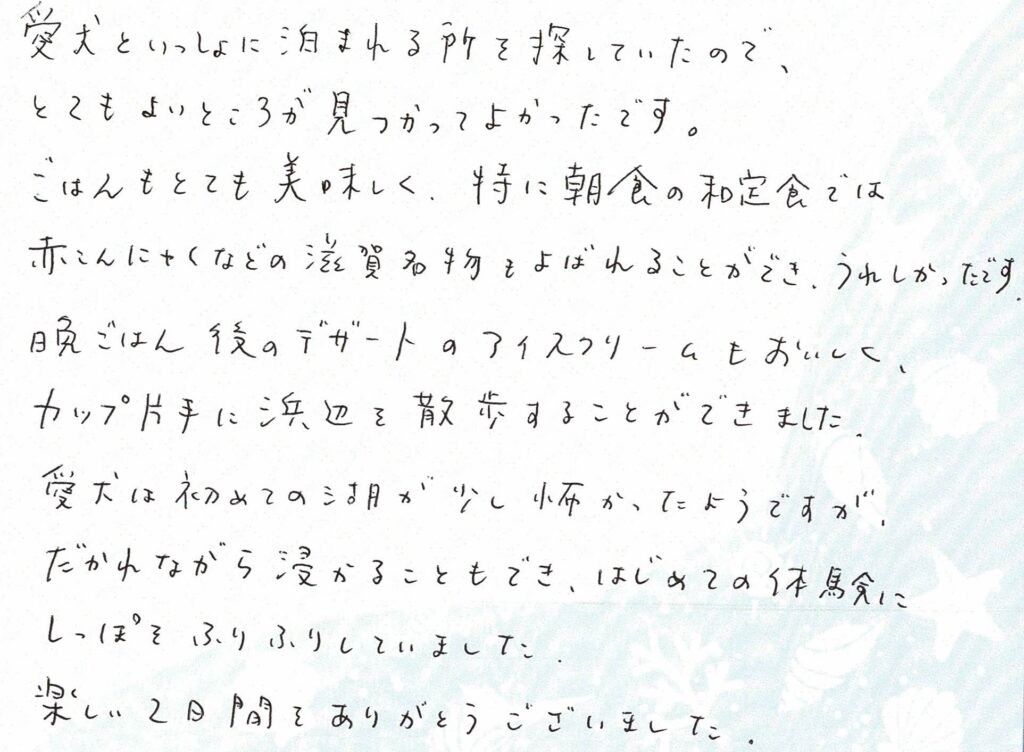 愛犬といっしょに泊まれる所を探していたので、
とてもよいところが見つかってよかったです。
ごはんもとても美味しく、特に朝食の和定食では
赤こんにゃくなどの滋賀名物もよばれることができ、うれしかったです。
晩ごはん後のデザートのアイスクリームもおいしく、
カップ片手に浜辺を散歩することができました。
愛犬は初めての湖が少し怖かったようですが、
だかれながら浸かることもでき、はじめての体験に
しっぽをふりふりしていました。
楽しい2日間をありがとうございました。